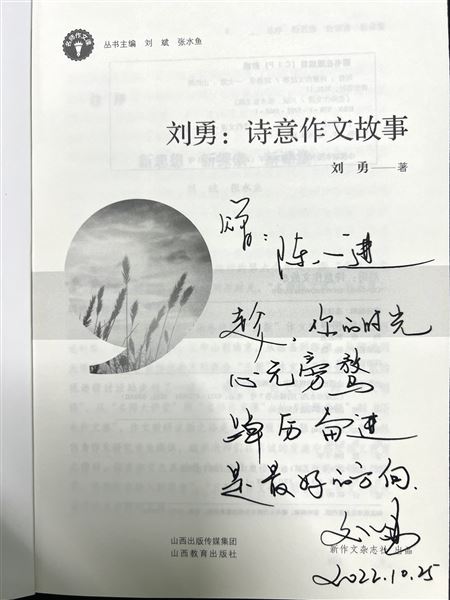 名师作文课
丛书主编 刘 斌 张水鱼
刘勇：诗意作文故事
刘 勇——著
赠：陈一进
趁，你的时光
心无旁骛
踔厉奋进
是最好的方向.
山西出版传媒集团
山西教育出版社
新作文杂志社 出品
2022.10.25